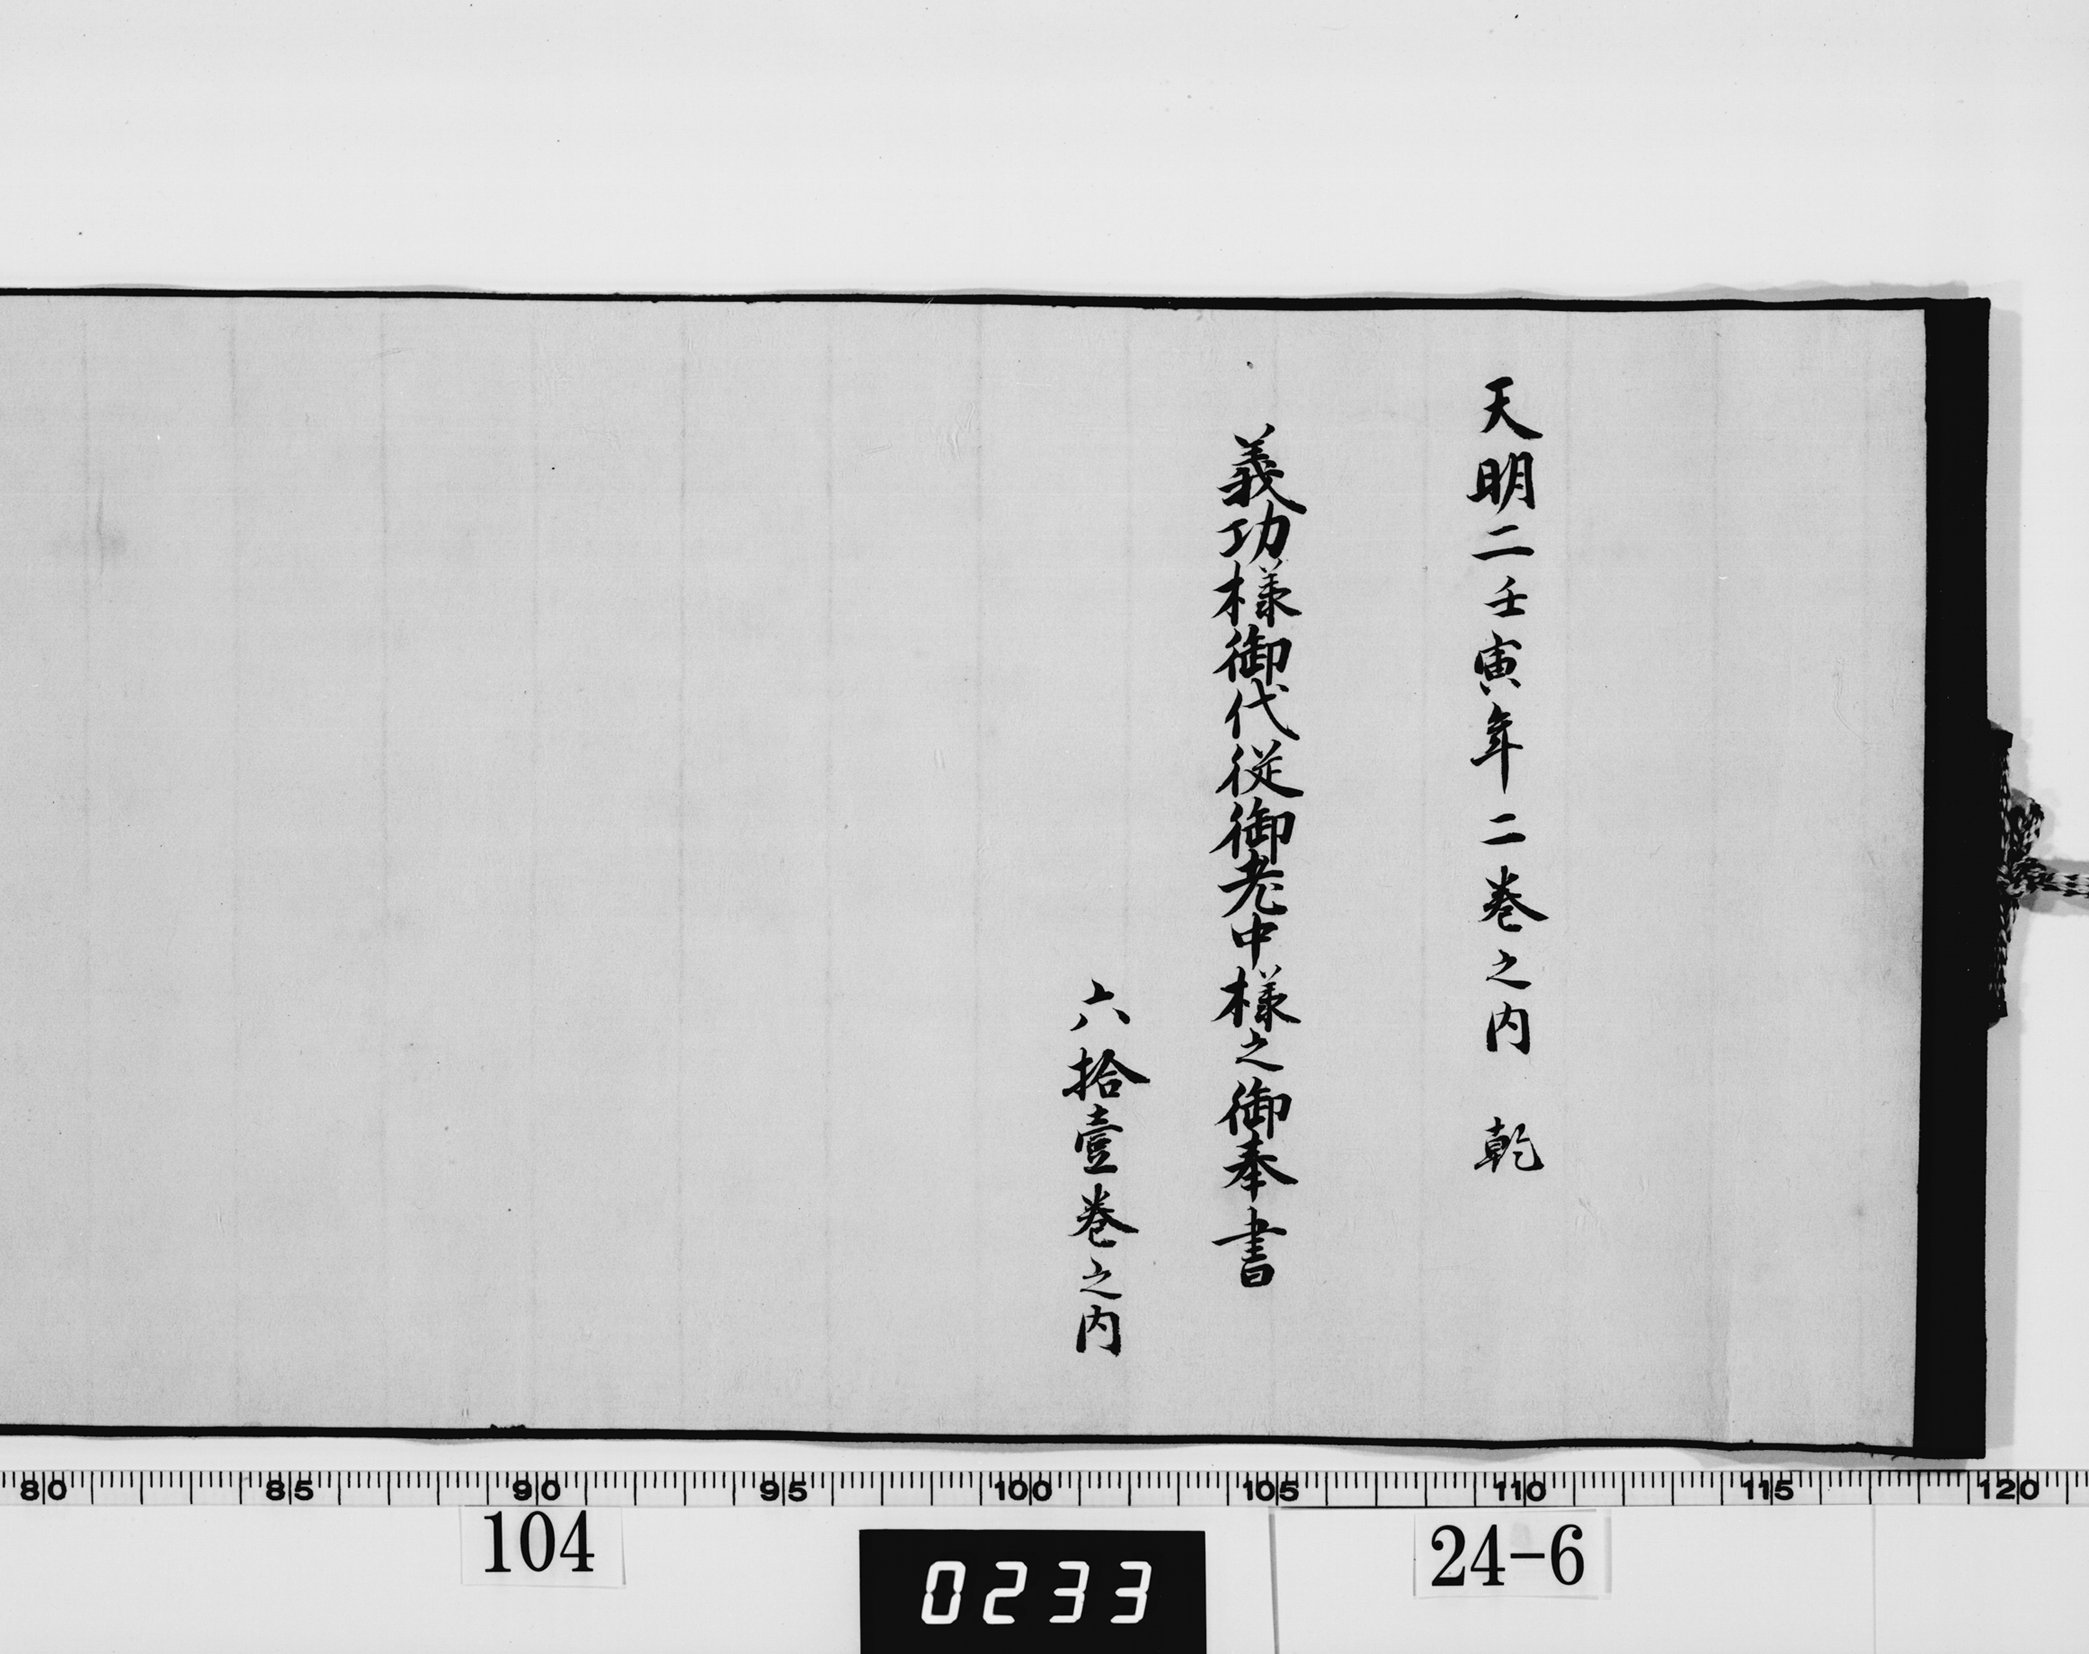 天明二壬寅年二巻之内　乾
義功様御代従御老中様之御奉書
六拾壹巻之内
80 85 90 95 100 105 110 115 120
104
0233
24-6